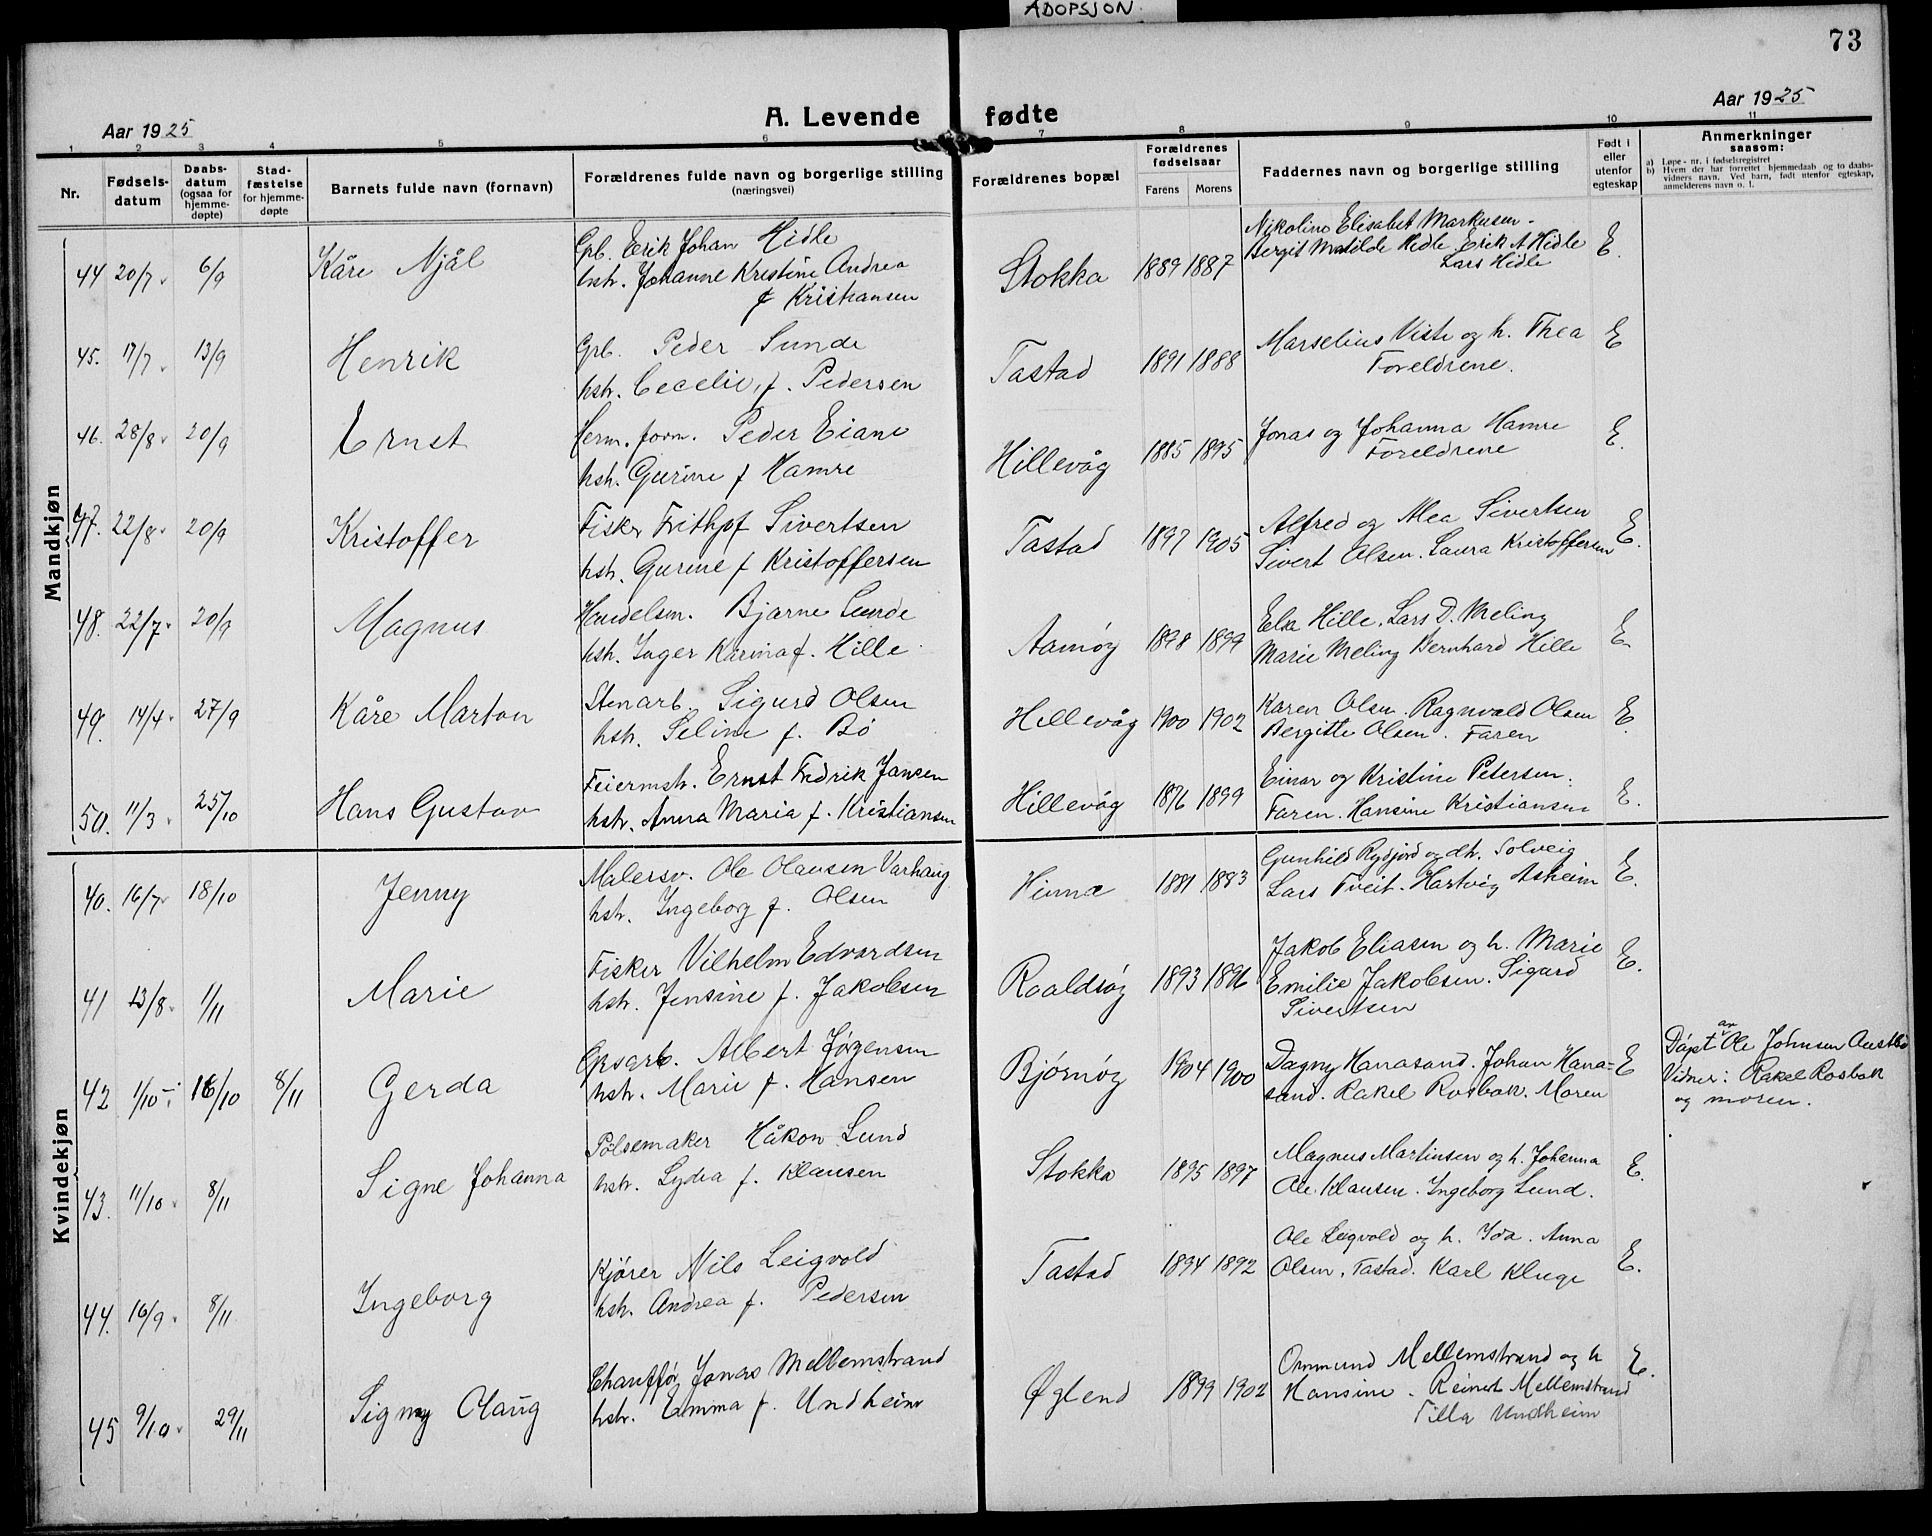 ADOPSJON
73
Aar 1925
A. Levende fødte
Aar 1925
1 2 3 4 5 6 7 8 9 10 11
Nr.
Fødsels-
datum
Daabs-
datum
(ogsaa for
hjemme-
døpte)
Stad-
fæstelse
for hjemme-
døpte
Barnets fulde navn (fornavn)
Forældrenes fulde navn og borgerlige stilling
(næringsvei)
Forældrenes bopæl
Forældrenes
fødselsaar
Farens Morens
Faddernes navn og borgerlige stilling
Født i
eller
utenfor
egteskap
Anmerkninger
saasom:
a) Løpe-nr. i fødselsregistret
b) Hvem der har forrettet hjemmedaab og to daabs-
vidners navn. Ved barn, født utenfor egteskap,
anmelderens navn o. l.
Mandkjøn
44 20/7 6/9 Kåre Njål
Gpb. Erik Johan Hidle
hstr. Johanne Kristine Andrea
f Kristiansen
Stokka 1889 1887
Nikoline Elisabet Markusen.
Bergit Matilde Hidle Erik A Hidle
Lars Hidle
E.
45. 17/7 13/9 Henrik
Gpb. Peder Sunde
hstr. Cecelie, f. Pedersen
Tastad 1891 1888
Marselius Viste og h. Thea
Foreldrene.
E
46. 28/8 20/9 Ernst
Herm. form. Peder Eiane
hstr. Gurine f Hamre
Hillevåg 1885 1895
Jonas og Johanna Hamre
Foreldrene
E.
47. 22/8 20/9 Kristoffer
Fisker Frithjof Sivertsen
hstr. Gurine f Kristoffersen
Tastad 1897 1905
Alfred og Alea Sivertsen
Sivert Olsen. Laura Kristoffersen
E.
48. 22/7 20/9 Magnus
Handelsm. Bjarne Lunde
hstr. Inger Karina f. Hille
Aamøy 1898 1899
Elsa Hille. Lars D. Meling
Marie Meling Bernhard Hille
E.
49. 14/4 27/9 Kåre Marton
Stenarb. Sigurd Olsen
hstr. Seline f. Bø
Hillevåg 1900 1902
Karen Olsen. Ragnvald Olsen
Bergitte Olsen. Faren
E.
50. 11/3 25/10 Hans Gustav
Feiermstr. Ernst Fredrik Jansen
hstr. Anna Maria f. Kristiansen
Hillevåg 1876 1899
Einar og Kristine Petersen.
Faren. Hansine Kristiansen
E.
Kvindekjøn
40. 16/7 18/10 Jenny
Malersv. Ole Olausen Varhaug
hstr. Ingeborg f. Olsen
Hinna 1881 1883
Gunhild Rydjord og dtr. Solveig
Lars Tveit. Hartvig Asheim
E.
41 13/8 1/11 Marie
Fisker Vilhelm Edvardsen
hstr. Jensine f. Jakobsen
Roaldsøy 1893 1896
Jakob Eliasen og h. Marie
Emilie Jakobsen. Sigurd
Sivertsen
E.
42 1/10 16/10 8/11 Gerda
Gpsarb. Albert Jørgensen
hstr. Marie f. Hansen
Bjørnøy 1904 1900
Dagny Hanasand. Johan Hana-
sand. Rakel Rosbak. Moren
E
Døpt av Ole Johnsen Austbø
Vidner: Rakel Rosbak
og moren.
43. 11/10 8/11 Signe Johanna
Pølsemaker Håkon Lund
hstr. Lydia f. Klausen
Stokka 1895 1897
Magnus Martinsen og h. Johanna
Ole Klausen. Ingeborg Lund.
E.
44. 16/9 8/11 Ingeborg
Kjører Nils Leigvold
hstr. Andrea f. Pedersen
Tastad 1894 1892
Ole Leigvold og h. Ida. Anna
Olsen, Tastad. Karl Kluge
E.
45 9/10 29/11 Signy Olaug
Chauffør Jonas Mellemstrand
hstr. Emma f. Undheim
Øglend 1899 1902
Ommund Mellemstrand og h
Hansine. Reinert Mellemstrand
Tilla Undheim
E.